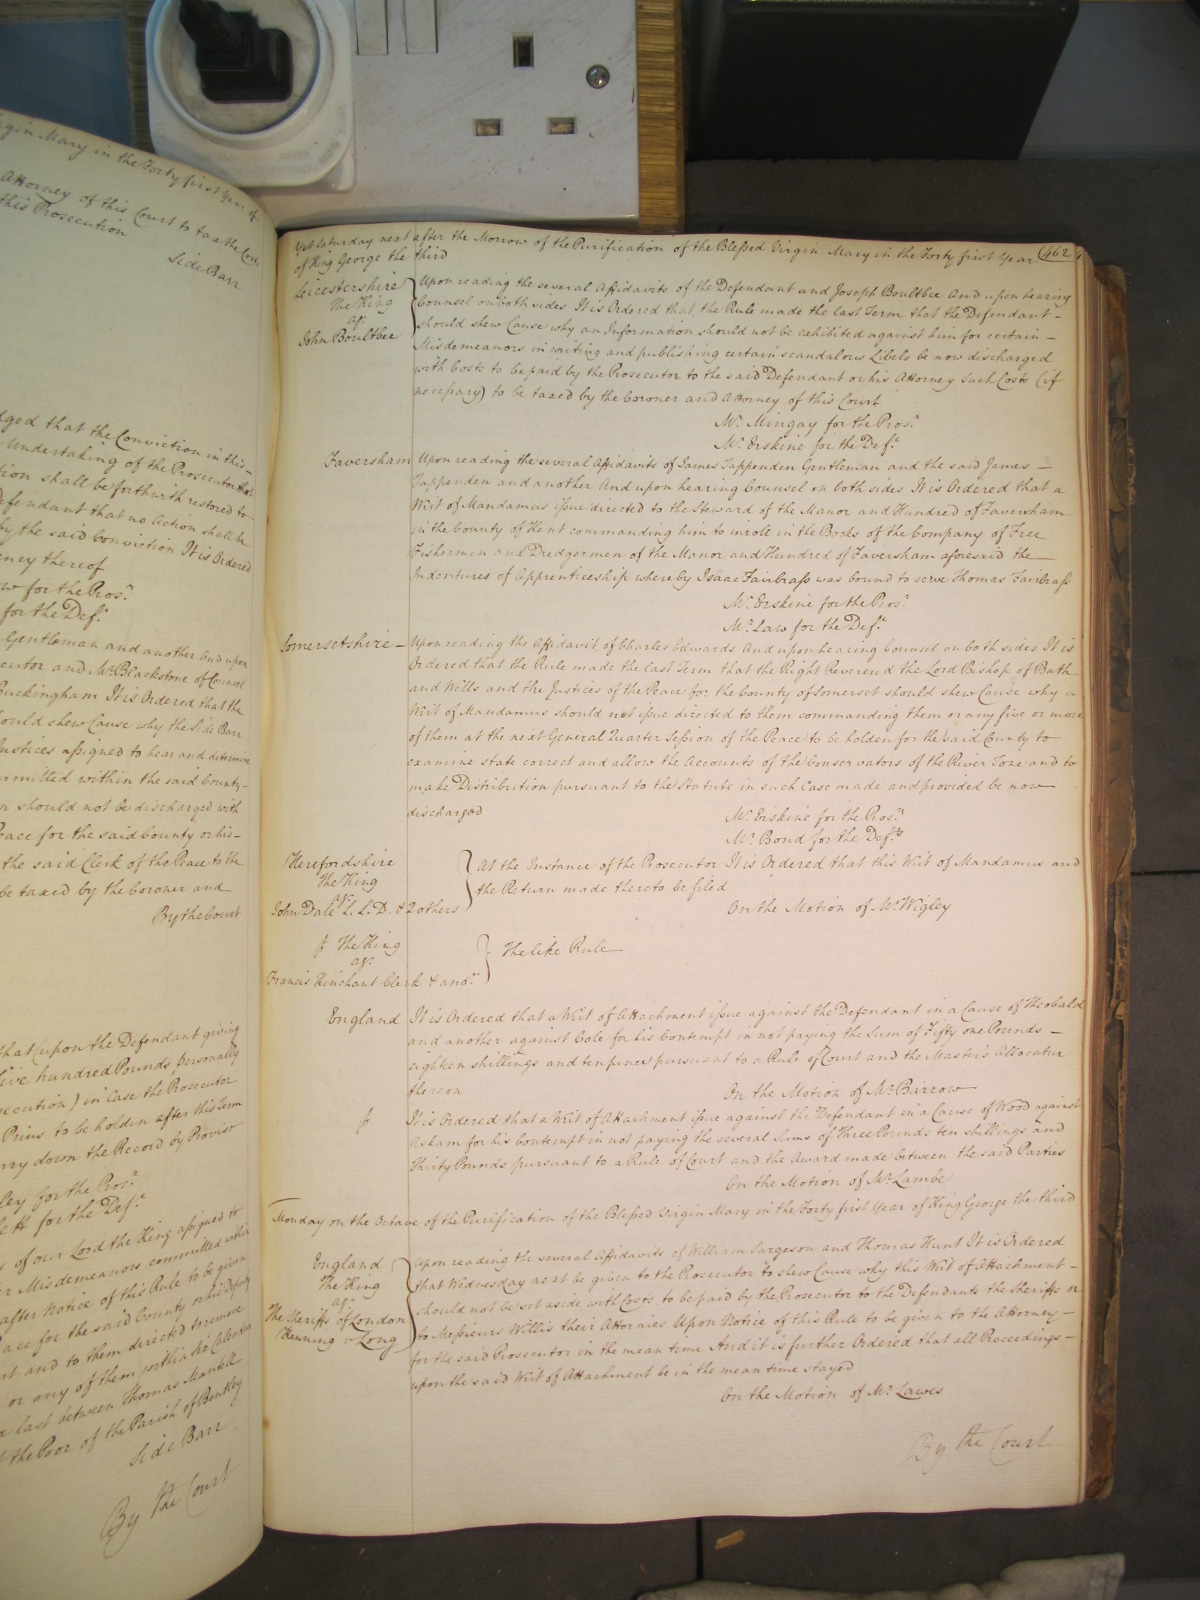 gin Mary in the Forty first Year of
Attorney of this Court to tax the Costs
this Prosecution
Side Barr
ged that the Conviction in this
Undertaking of the Prosecutor that
tion shall be forthwith restored to
Defendant that no Action shall be
by the said Conviction It is Ordered
ney thereof
w for the Pros.r
for the Def.t
Gentleman and another And upon
ecutor and Mr. Blackstone of Counsel
Buckingham It is Ordered that the
should shew Cause why the Side Barr
Justices assigned to hear and determine
ommitted within the said County
n should not be discharged with
Peace for the said County or his
the said Clerk of the Peace to the
be taxed by the Coroner and
By the Court
that (upon the Defendant giving
five hundred Pounds personally
secution) in Case the Prosecutor
Prius to be holden after this Term
carry down the Record by Proviso
ley for the Pros.r
ett for the Def.t
of our Lord the King assigned to
r Misdemeanors committed within
after Notice of this Rule to be given
ace for the said County or his Deputy
rt and to them directed to remove
or any of them within Six Calendar
last between Thomas Mantell
the Poor of the Parish of Bentley
Side Barr
By the Court
Yet Saturday next after the Morrow of the Purification of the Blessed Virgin Mary in the Forty first Year 462
of King George the third
Leicestershire
The King
agt.
John Boultbee
Upon reading the several Affidavits of the Defendant and Joseph Boultbee And upon hearing
Counsel on both sides It is Ordered that the Rule made the last Term that the Defendant
should shew Cause why an Information should not be exhibited against him for certain
Misdemeanors in writing and publishing certain scandalous Libels be now discharged
with Costs to be paid by the Prosecutor to the said Defendant or his Attorney Such Costs (if
necessary) to be taxed by the Coroner and Attorney of this Court
Mr. Mingay for the Pros.r
Mr. Erskine for the Def.t
Faversham Upon reading the several Affidavits of James Tappenden Gentleman and the said James
Tappenden and another And upon hearing Counsel on both sides It is Ordered that a
Writ of Mandamus issue directed to the Steward of the Manor and Hundred of Faversham
in the County of Kent commanding him to inroll in the Books of the Company of Free
Fishermen and Dredgermen of the Manor and Hundred of Faversham aforesaid the
Indentures of Apprenticeship whereby Isaac Fairbrass was bound to serve Thomas Fairbrass
Mr. Erskine for the Pros.r
Mr. Law for the Def.t
Somersetshire Upon reading the Affidavit of Charles Edwards And upon hearing Counsel on both sides It is
Ordered that the Rule made the last Term that the Right Reverend the Lord Bishop of Bath
and Wells and the Justices of the Peace for the County of Somerset should shew Cause why a
Writ of Mandamus should not issue directed to them commanding them or any five or more
of them at the next General Quarter Session of the Peace to be holden for the said County to
examine state correct and allow the Accounts of the Conservators of the River Tone and to
make Distribution pursuant to the Statute in such Case made and provided be now
discharged
Mr. Erskine for the Pros.r
Mr. Bond for the Def.ts
Herefordshire
The King
agt.
John Dale L.L.D. & 2 others
At the Instance of the Prosecutor It is Ordered that this Writ of Mandamus and
the Return made thereto be filed
On the Motion of Mr. Wigley
The King
agt.
Francis Kinchant Clerk & ano.r
The like Rule
England It is Ordered that a Writ of Attachment issue against the Defendant in a Cause of Theobald
and another against Cole for his Contempt in not paying the Sum of Fifty one Pounds
eighteen shillings and tenpence pursuant to a Rule of Court and the Master's Allocatur
thereon
On the Motion of Mr. Barrow
It is Ordered that a Writ of Attachment issue against the Defendant in a Cause of Wood against
Askam for his Contempt in not paying the several Sums of Three Pounds ten shillings and
Thirty Pounds pursuant to a Rule of Court and the Award made between the said Parties
On the Motion of Mr. Lambe
Monday on the Octave of the Purification of the Blessed Virgin Mary in the Forty first Year of King George the third
England
The King
agt.
The Sheriffs of London
Henning v. Long
Upon reading the several Affidavits of William Sargeson and Thomas Hunt It is Ordered
that Wednesday next be given to the Prosecutor to shew Cause why this Writ of Attachment
should not be set aside with Costs to be paid by the Prosecutor to the Defendants the Sheriffs or
to Messieurs Willis their Attornies Upon Notice of this Rule to be given to the Attorney
for the said Prosecutor in the mean time And it is further Ordered that all Proceedings
upon the said Writ of Attachment be in the mean time stayed
On the Motion of Mr. Lawes
By the Court